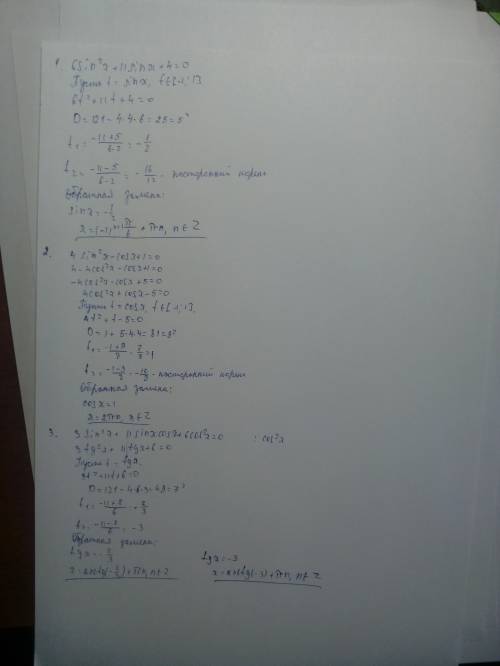 1. 6sin²x+11sinx+4=0
Пусть t = sinx, t∈[-1;1]
6t²+11t+4=0
D=121-4·4·6=25=5²
t₁=(-11+5)/(6·2)=-1/2
t₂=(-11-5)/(6·2)=-16/12 - посторонний корень
Обратная замена:
sinx=-1/2
x=(-1)ⁿ⁺¹π/6+πn, n∈Z
2. 4sin²x-cosx+1=0
4-4cos²x-cosx+1=0
-4cos²x-cosx+5=0
4cos²x+cosx-5=0
Пусть t=cosx, t∈[-1;1]
4t²+t-5=0
D=1+5·4·4=81=9²
Обратная замена:
cosx=1
x=2πn, n∈Z
3. 3sin²x+11sinxcosx+6cos²x=0 :cos²x
3tg²x+11tgx+6=0
Пусть t=tgx.
3t²+11t+6=0
t₂=(-11-7)/6=-3
Обратная замена:
tgx=-2/3 tgx=-3
x=arctg(-2/3)+πn, n∈Z x=arctg(-3)+πn, n∈Z